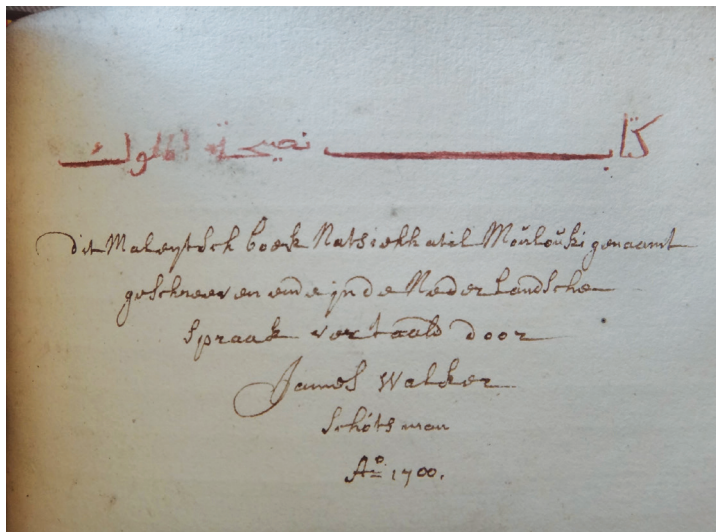 كتاب نصيحة الملوك
dit Maleytsch boek Natsiehhatil Moŭloŭki genaamt
geschreeven ende in de Nederlandsche
spraak vertaald door
James Walker
Schótsman
Aº 1700.